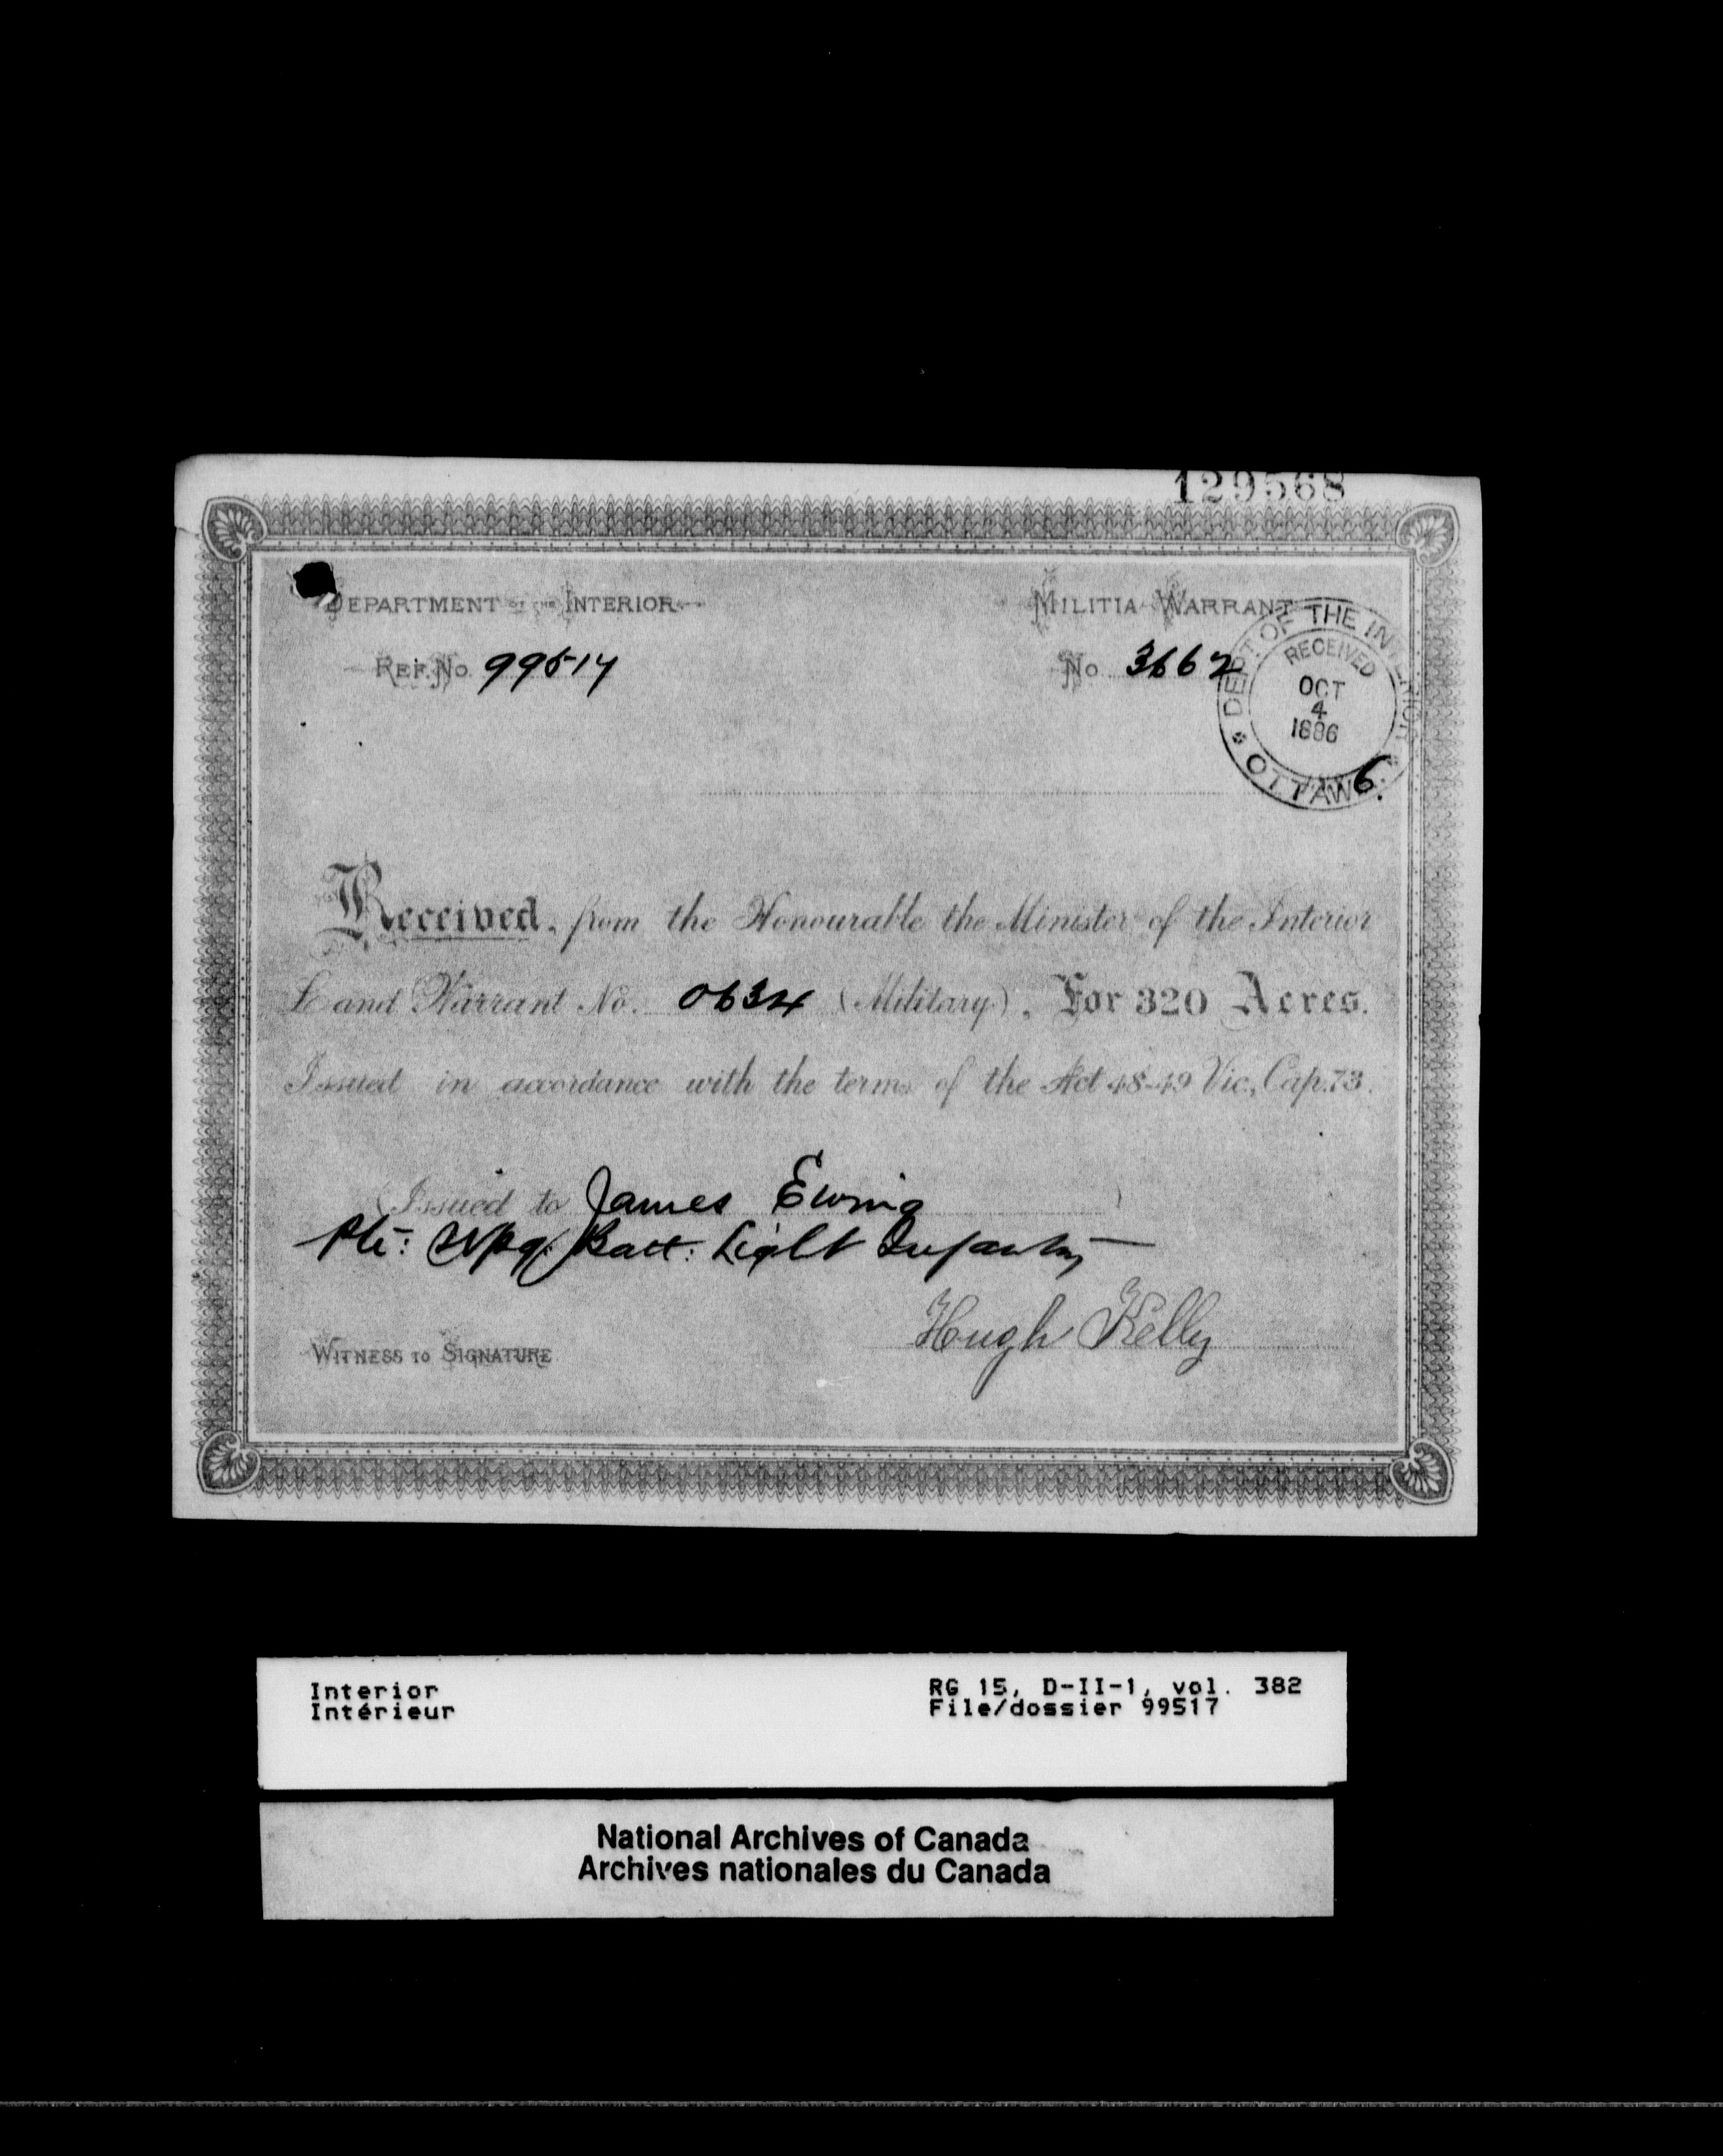 129568
DEPARTMENT OF THE INTERIOR
MILITIA WARRANT
REF. No. 99517
No. 3662
DEPT. OF THE INTERIOR
RECEIVED
OCT
4
1886
OTTAWA
6.
Received, from the Honourable the Minister of the Interior
Land Warrant No. 0634 (Military), For 320 Acres.
Issued in accordance with the terms of the Act 48-49 Vic., Cap. 73.
(Issued to James Ewing)
Pte: Wpg. Batt: Light Infantry
Hugh Kelly
WITNESS TO SIGNATURE
Interior
Intérieur
RG 15, D-II-1, vol. 382
File/dossier 99517
National Archives of Canada
Archives nationales du Canada